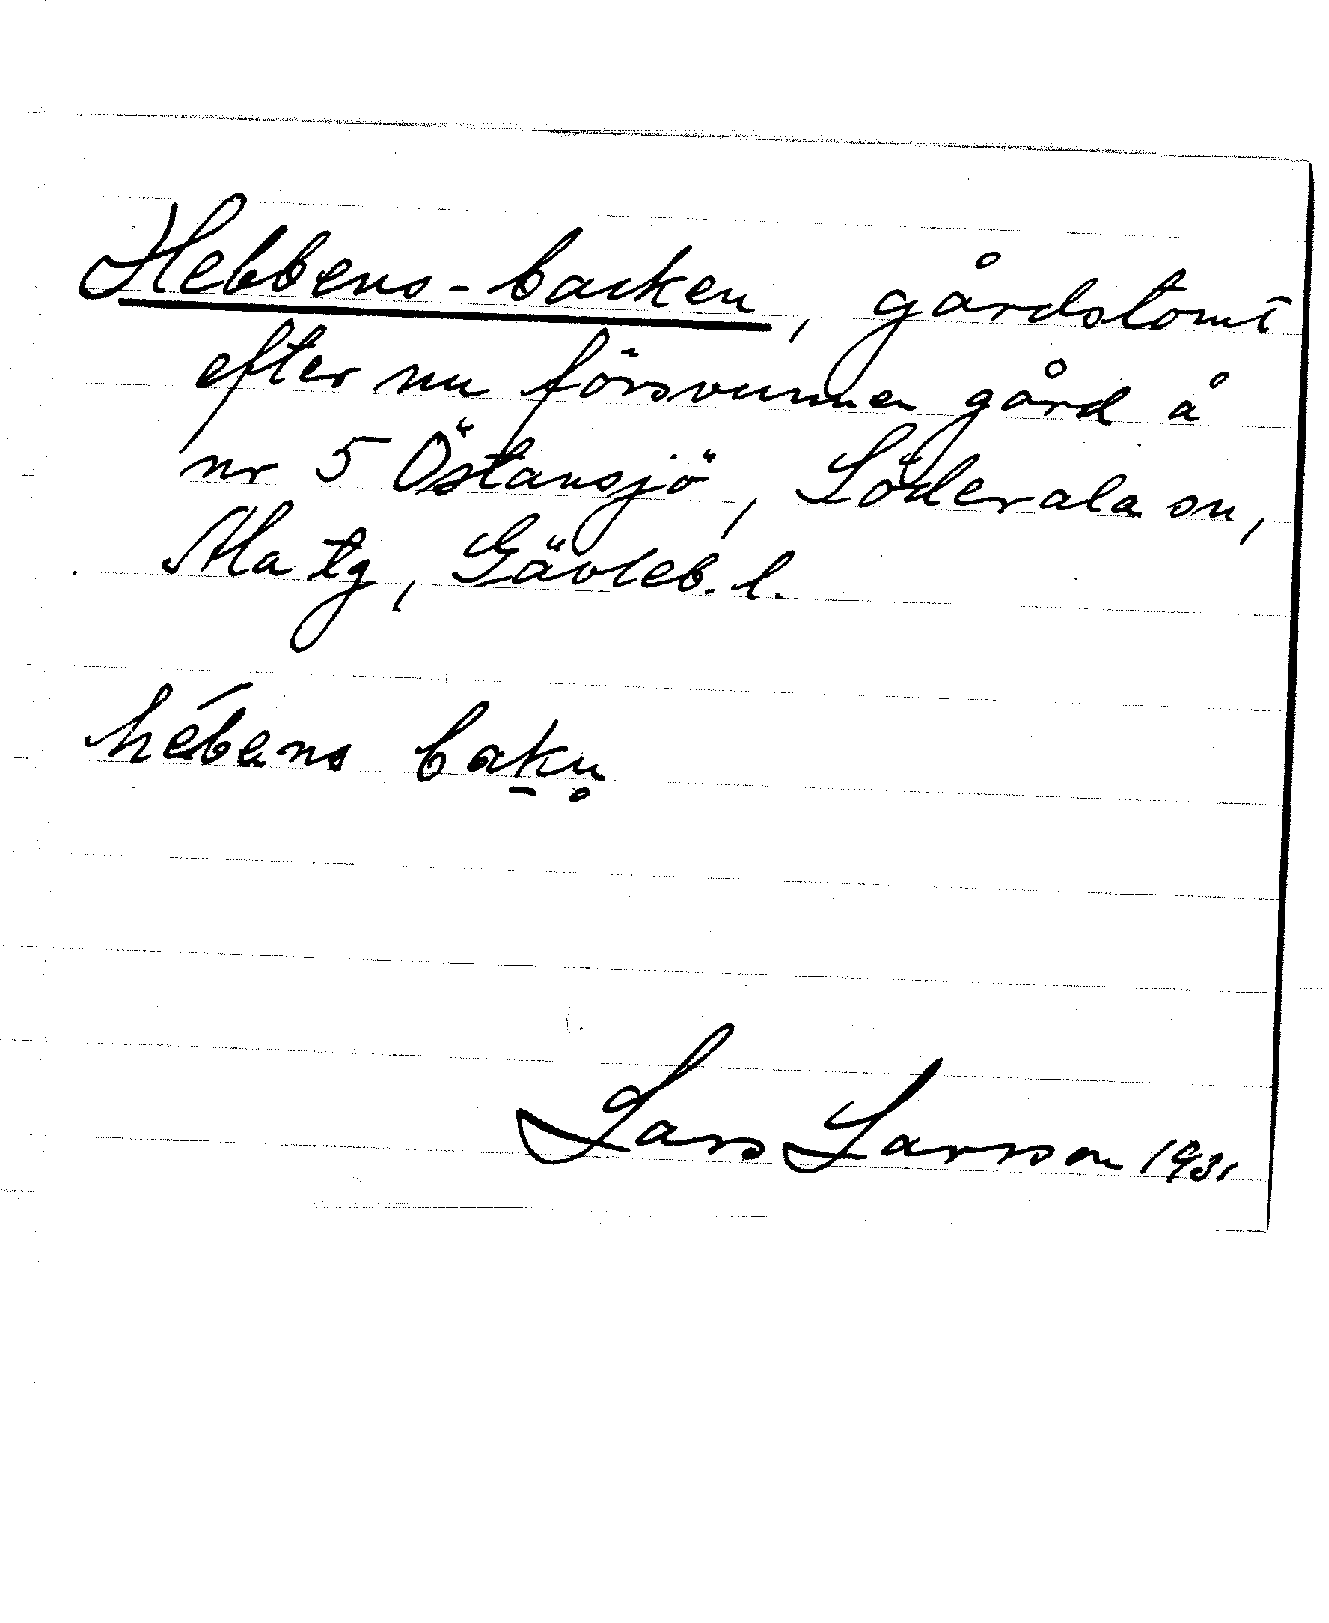 Hebbens-backen, gårdstomt
efter nu försvunnen gård å
nr 5 Östansjö, Söderala sn,
Ala tg, Gävleb. l.
hébens bak̠n̥
Lars Larsson 1931